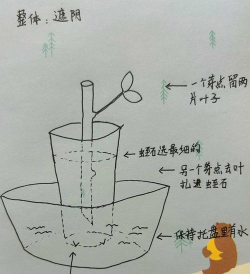 整体：遮阴
一个芽点留两
片叶子
蛭石选最细的
另一个芽点去叶
扎进蛭石
保持托盘里有水